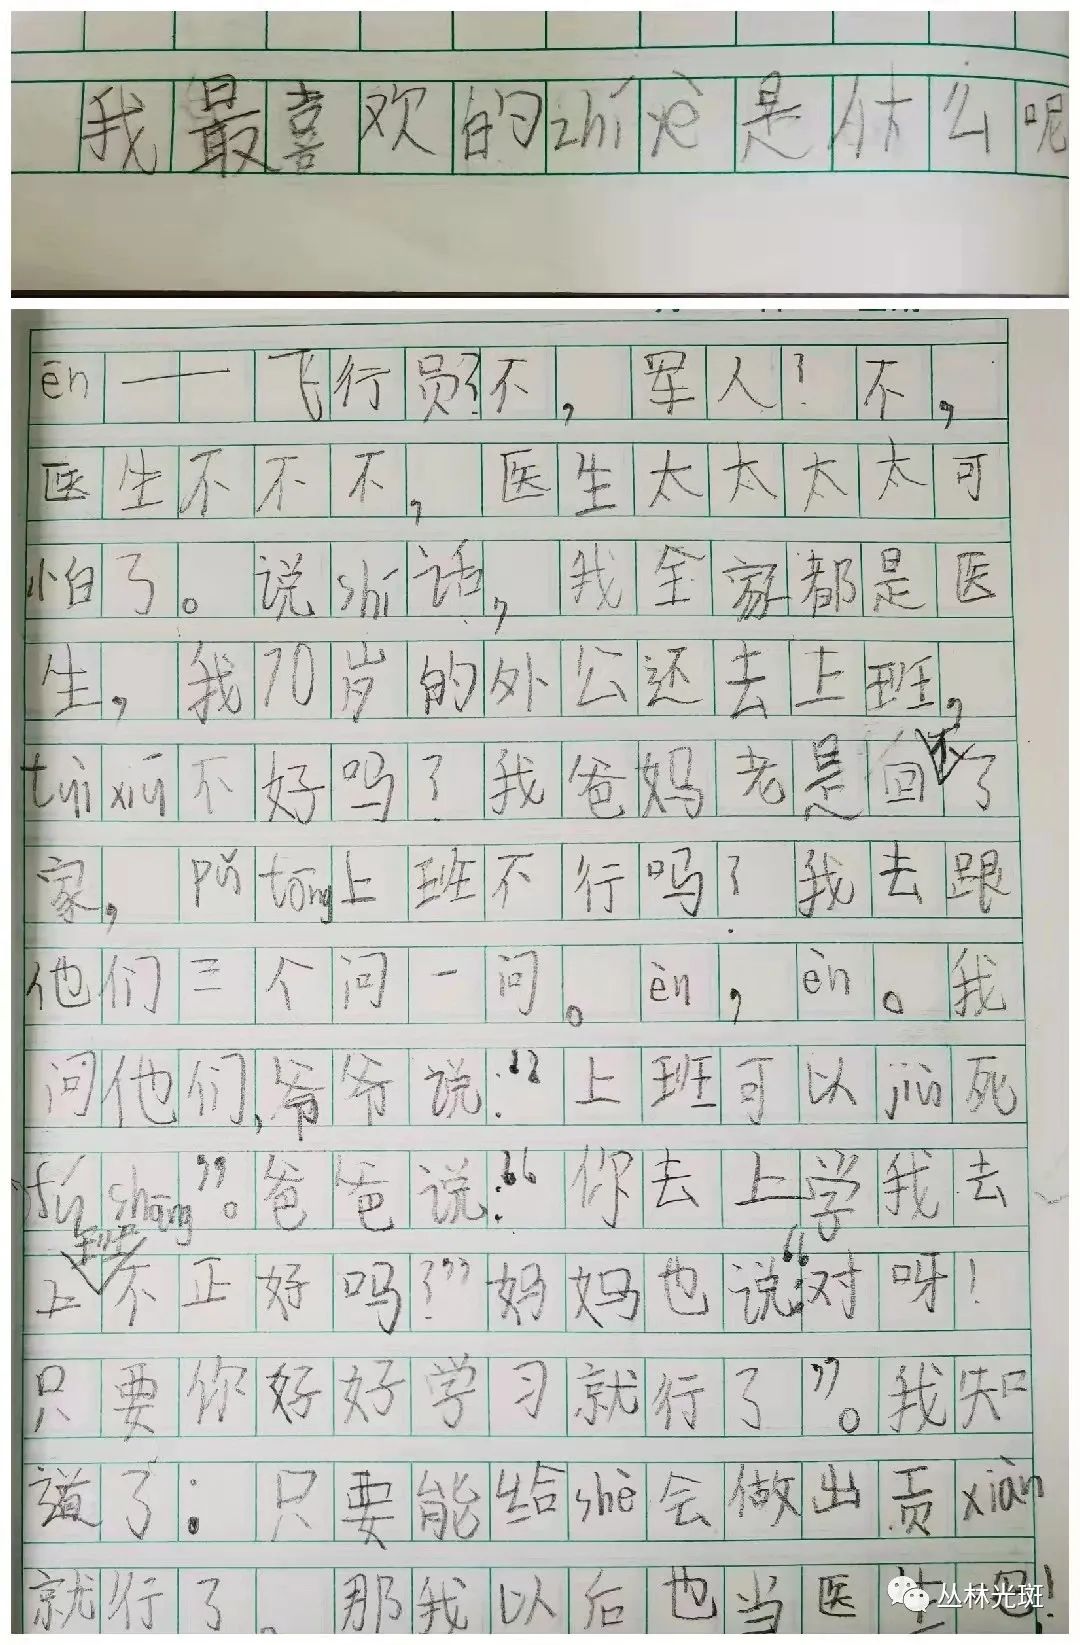 我最喜欢的zhí yè是什么呢
ēn——飞行员？不，军人？不，
医生不不不，医生太太太太可
怕了。说shí话，我全家都是医
生，我70岁的外公还去上班，
tuì xiū不好吗？我爸妈老是回不了
家，pǔ tōng上班不行吗？我去跟
他们三个问一问。èn，èn。我
问他们，爷爷说：“上班可以jiù死
fú shāng”。爸爸说：“你去上学我去
上班不正好吗？”妈妈也说：“对呀！
只要你好好学习就行了”。我知
道了：只要能给shè会做出贡xiàn
就行了。那我以后也当医生吧！
丛林光斑